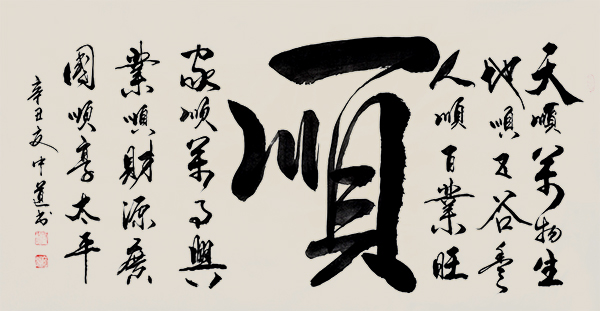 天順萬物生
地順五谷豊
人順百業旺
順
家順萬事興
業順財源廣
國順享太平
辛丑夏中道書